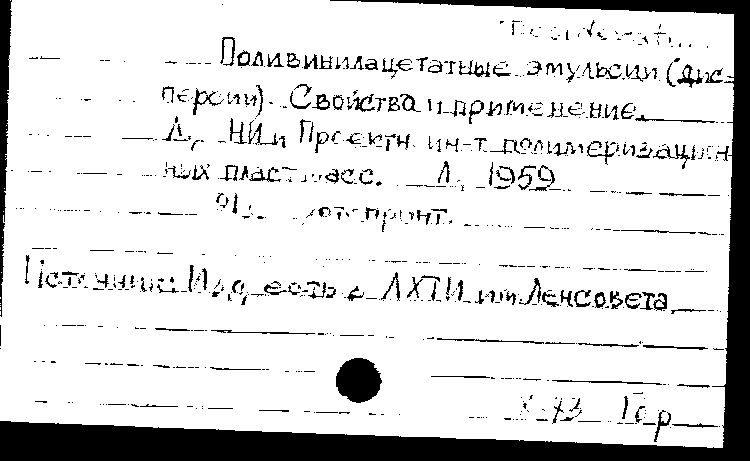 Desiderat...
Поливинилацетатные эмульсии (дис=
персии). Свойства и применение.
Л., НИ и Проектн. ин-т полимеризацион
ных пластмасс. Л., 1959
91 с. ротопринт.
Источник: Изд. есть в ЛХТИ им Ленсовета.
X-73 Гор